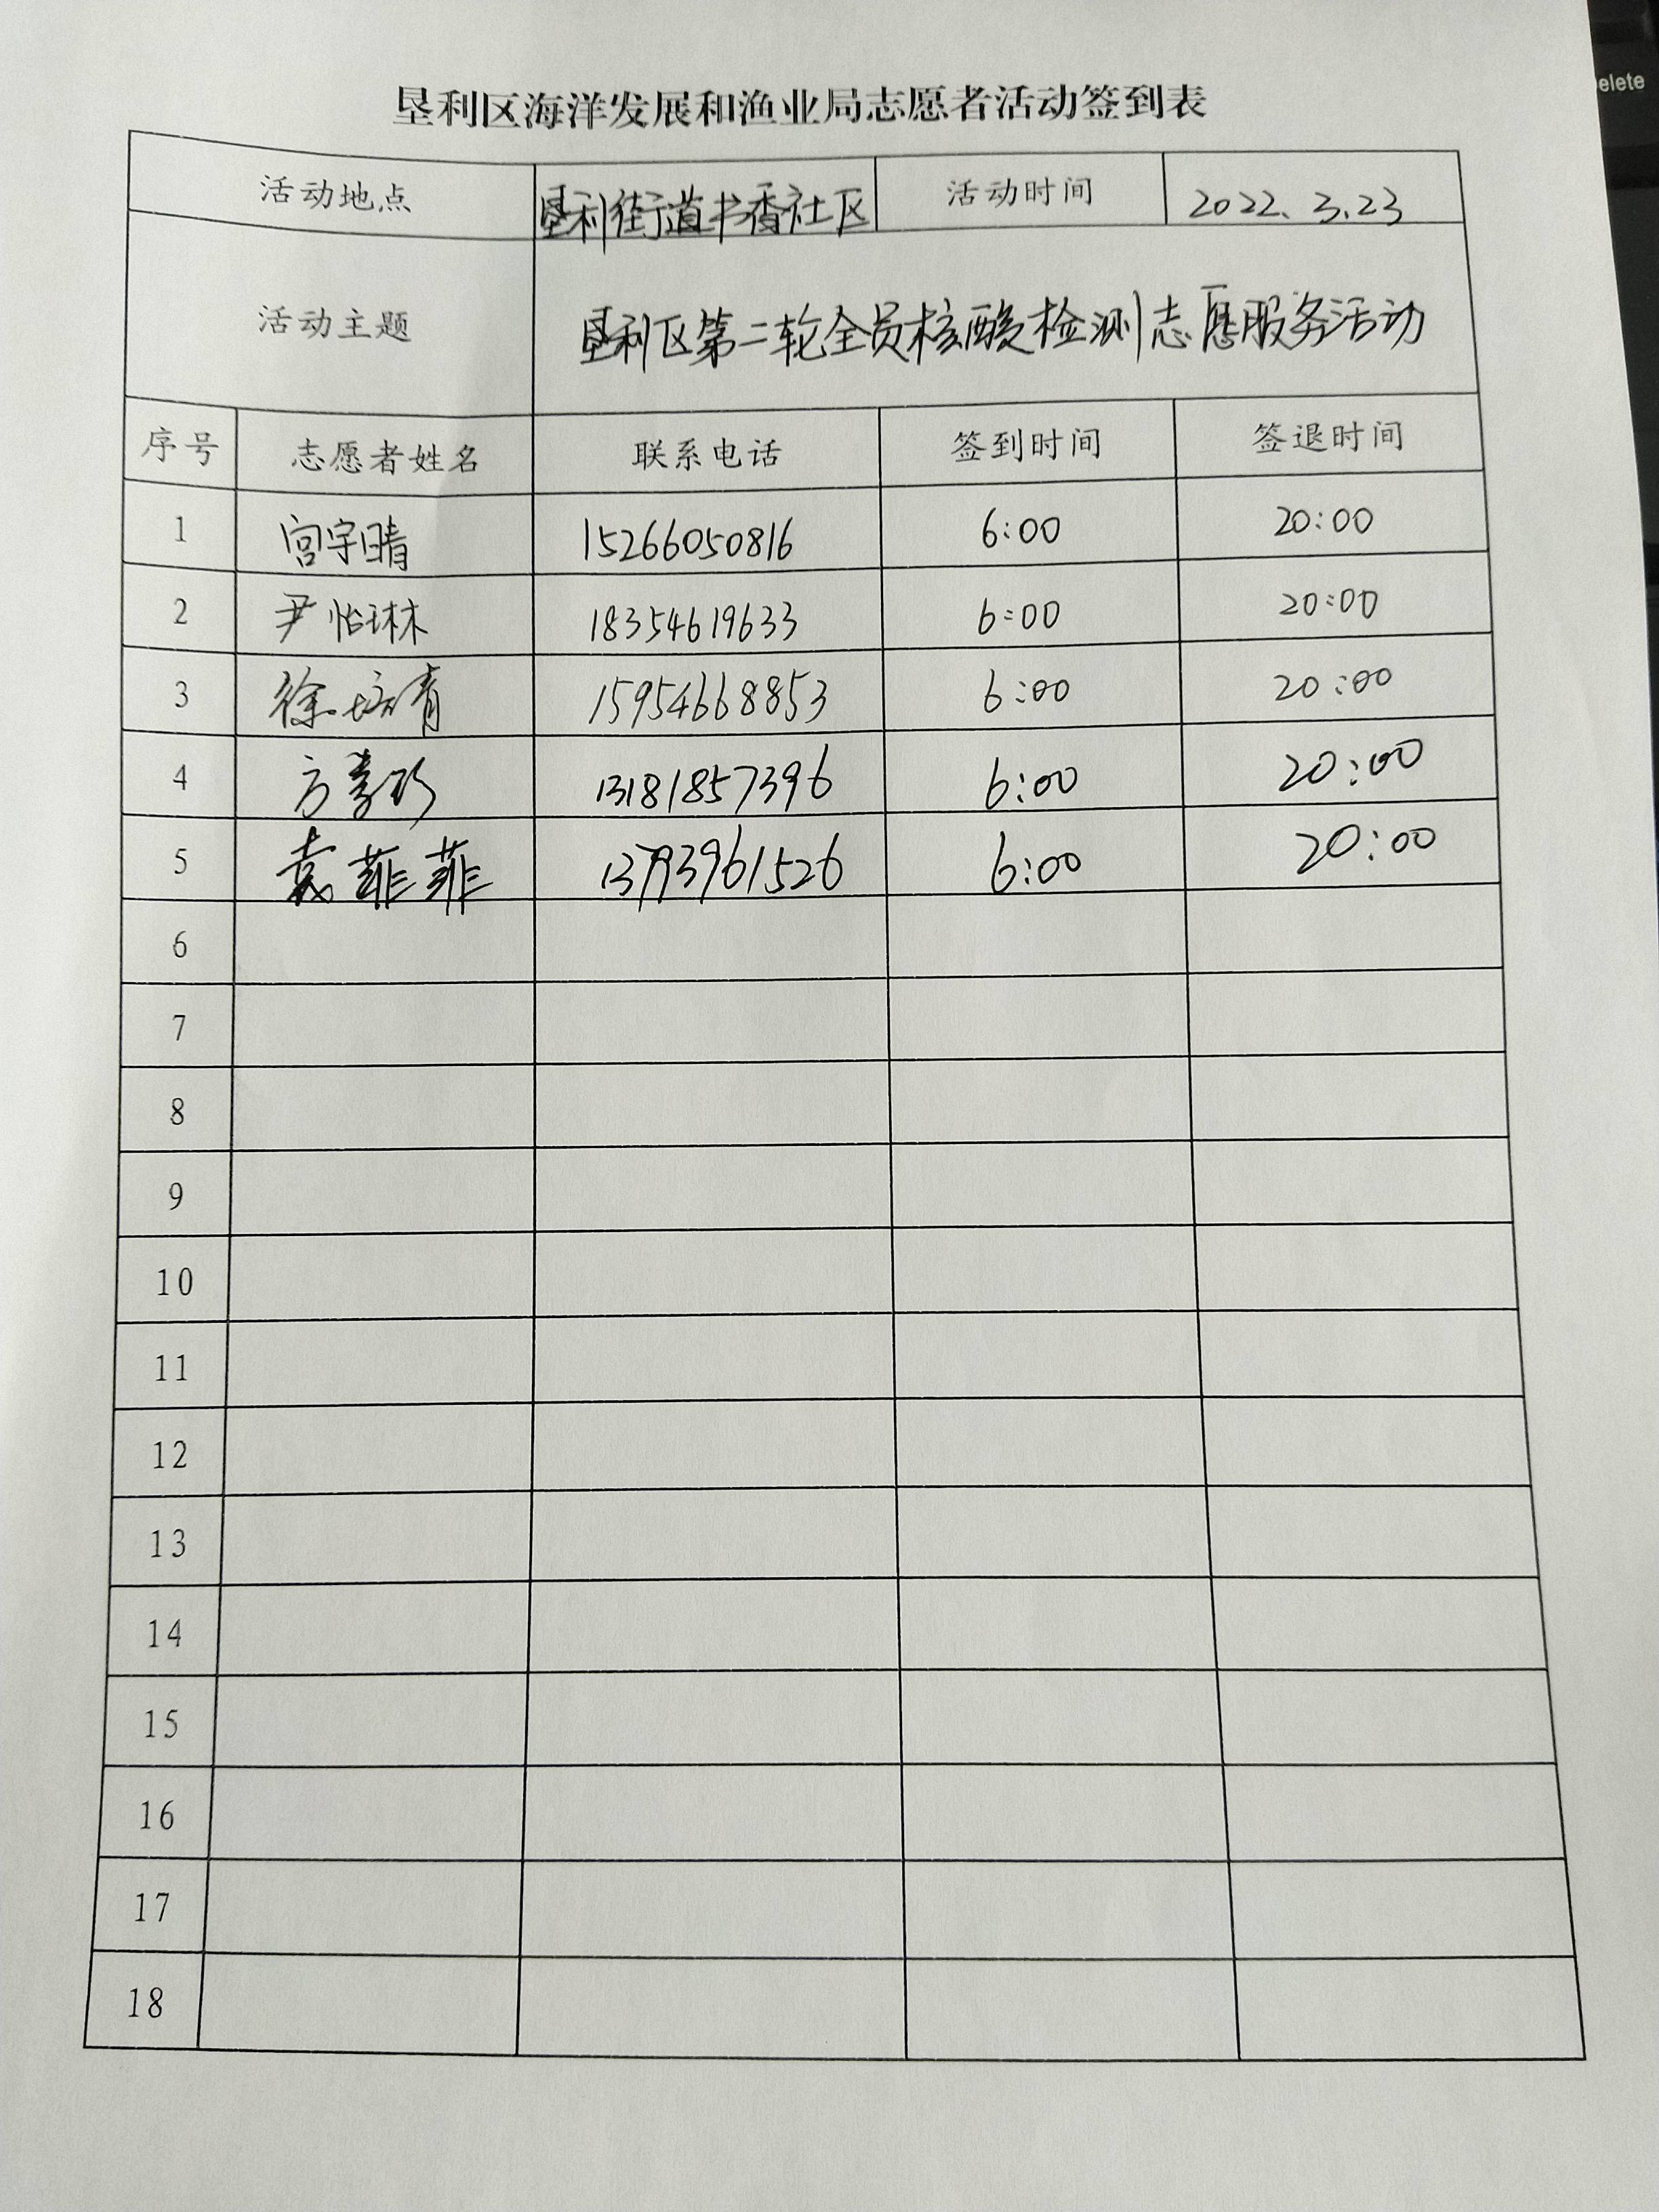 elete
垦利区海洋发展和渔业局志愿者活动签到表
活动地点 垦利街道书香社区 活动时间 2022.3.23
活动主题 垦利区第二轮全员核酸检测志愿服务活动
序号 志愿者姓名 联系电话 签到时间 签退时间
1 宫宇晴 15266050816 6:00 20:00
2 尹怡琳 18354619633 6:00 20:00
3 徐培青 15954668853 6:00 20:00
4 方 13181857396 6:00 20:00
5 袁菲菲 13793961526 6:00 20:00
6
7
8
9
10
11
12
13
14
15
16
17
18